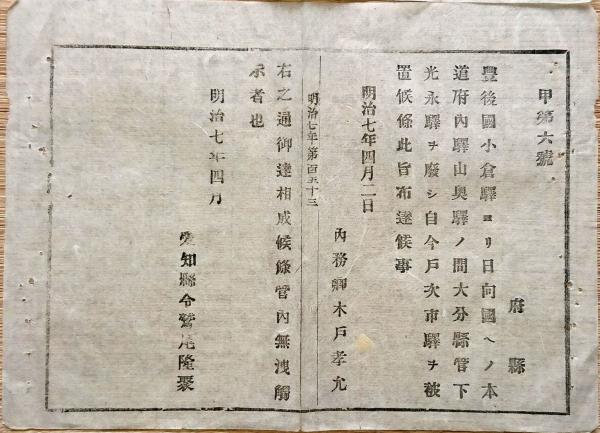 甲第六號
府縣
豊後國小倉驛ヨリ日向國ヘノ本
道府內驛山奧驛ノ間大分縣管下
光永驛ヲ廢シ自今戶次市驛ヲ被
置候條此旨布達候事
明治七年四月二日
內務卿木戶孝允
明治七年第百五十三
右之通御達相成候條管內無洩觸
示者也
明治七年四月
愛知縣令鷲尾隆聚